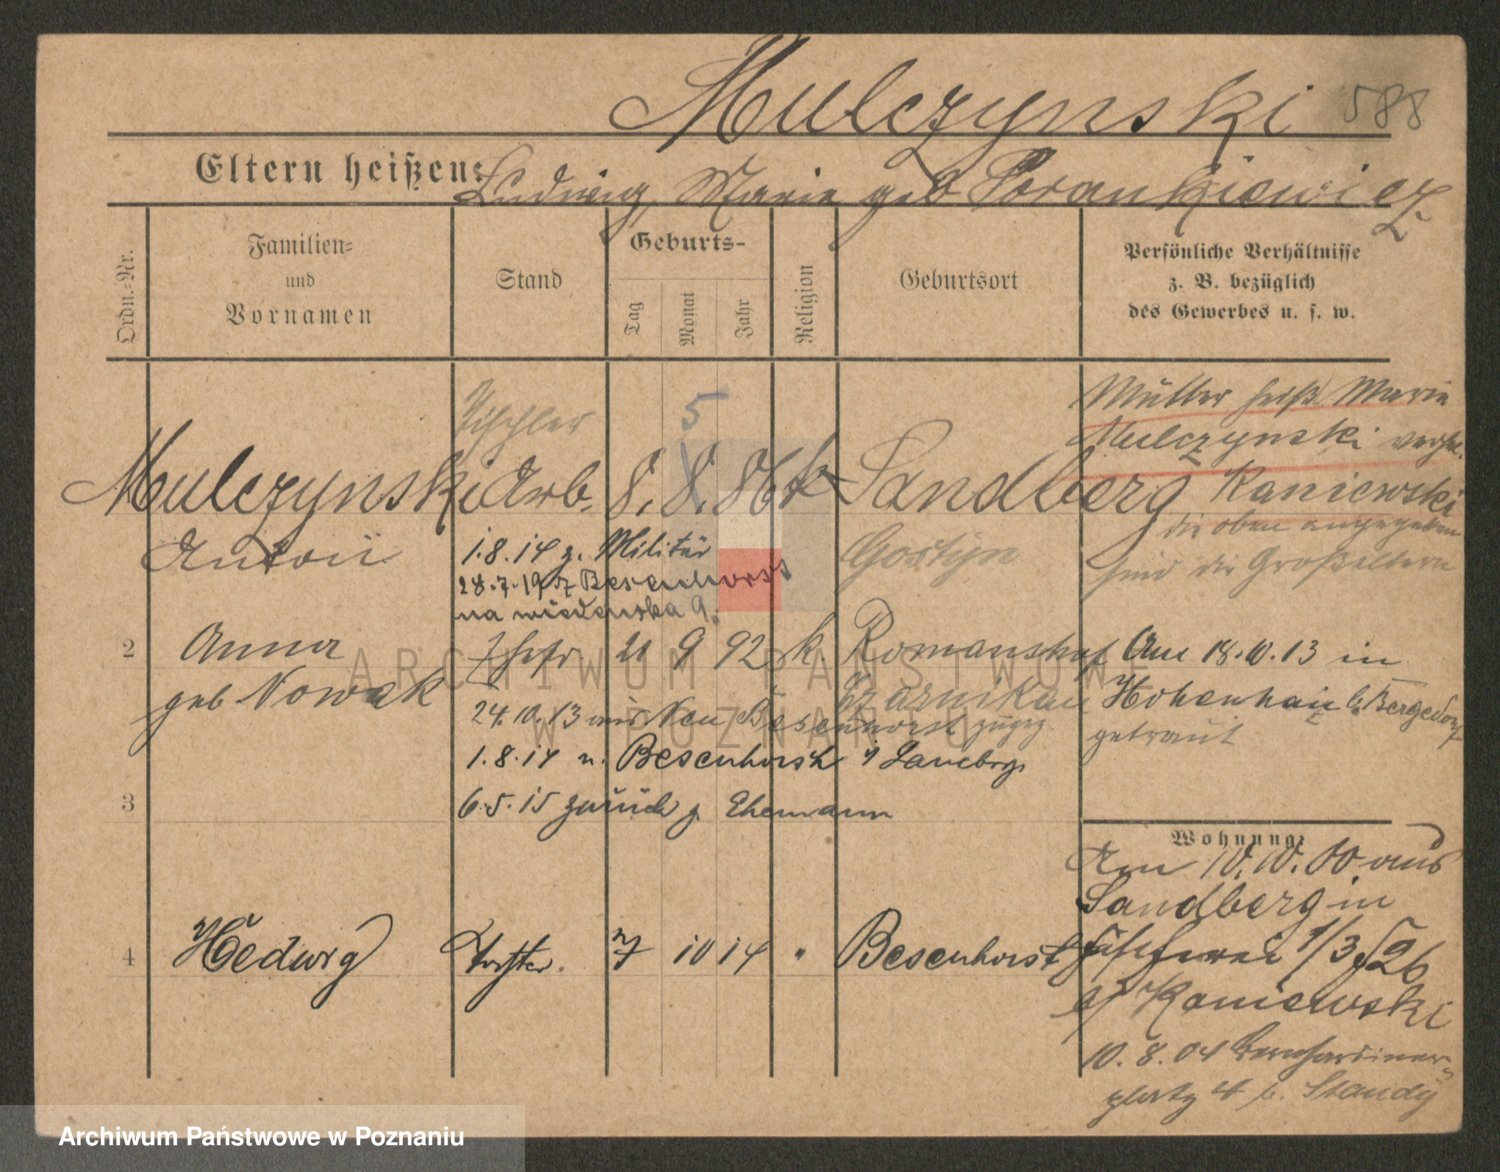 Mulczynski 588
Eltern heißen: Ludwig, Marie geb Porankiewicz
Ordn.-Nr.
Familien-
und
Vornamen
Stand
Geburts-
Tag
Monat
Jahr
Religion
Geburtsort
Persönliche Verhältnisse
z. B. bezüglich
des Gewerbes u. s. w.
Tischler
5
Mulczynski Arb. 8. 8. 86 k Sandberg
Anton
Gostyn
1.8.14 z. Militär
28.7.19 Besenhorst
na wiedenska 9.
Mutter heißt Marie
Mulczynski
Kaniewski
die oben angegeben
sind die Großeltern
2 Anna Ehefr 21 9 92 k Romanshof
geb Nowak
Czarnikau
Am 18.10.13 in
Hohenhain b. Bergedorf
getraut
24.10.13 aus Neu Besenhorst zugez.
1.8.14 n. Besenhorst
3
6.5.15 zurück z Ehemann
Wohnung:
Am 10.10.00 aus
Sandberg in
1/3 26
b/ Kaniewski
10.8.04 Bernhardiner-
platz 4 b. Standy
4 Hedwig Tochter. 10 14 " Besenhorst
ARCHIWUM PAŃSTWOWE
W POZNANIU
Archiwum Państwowe w Poznaniu